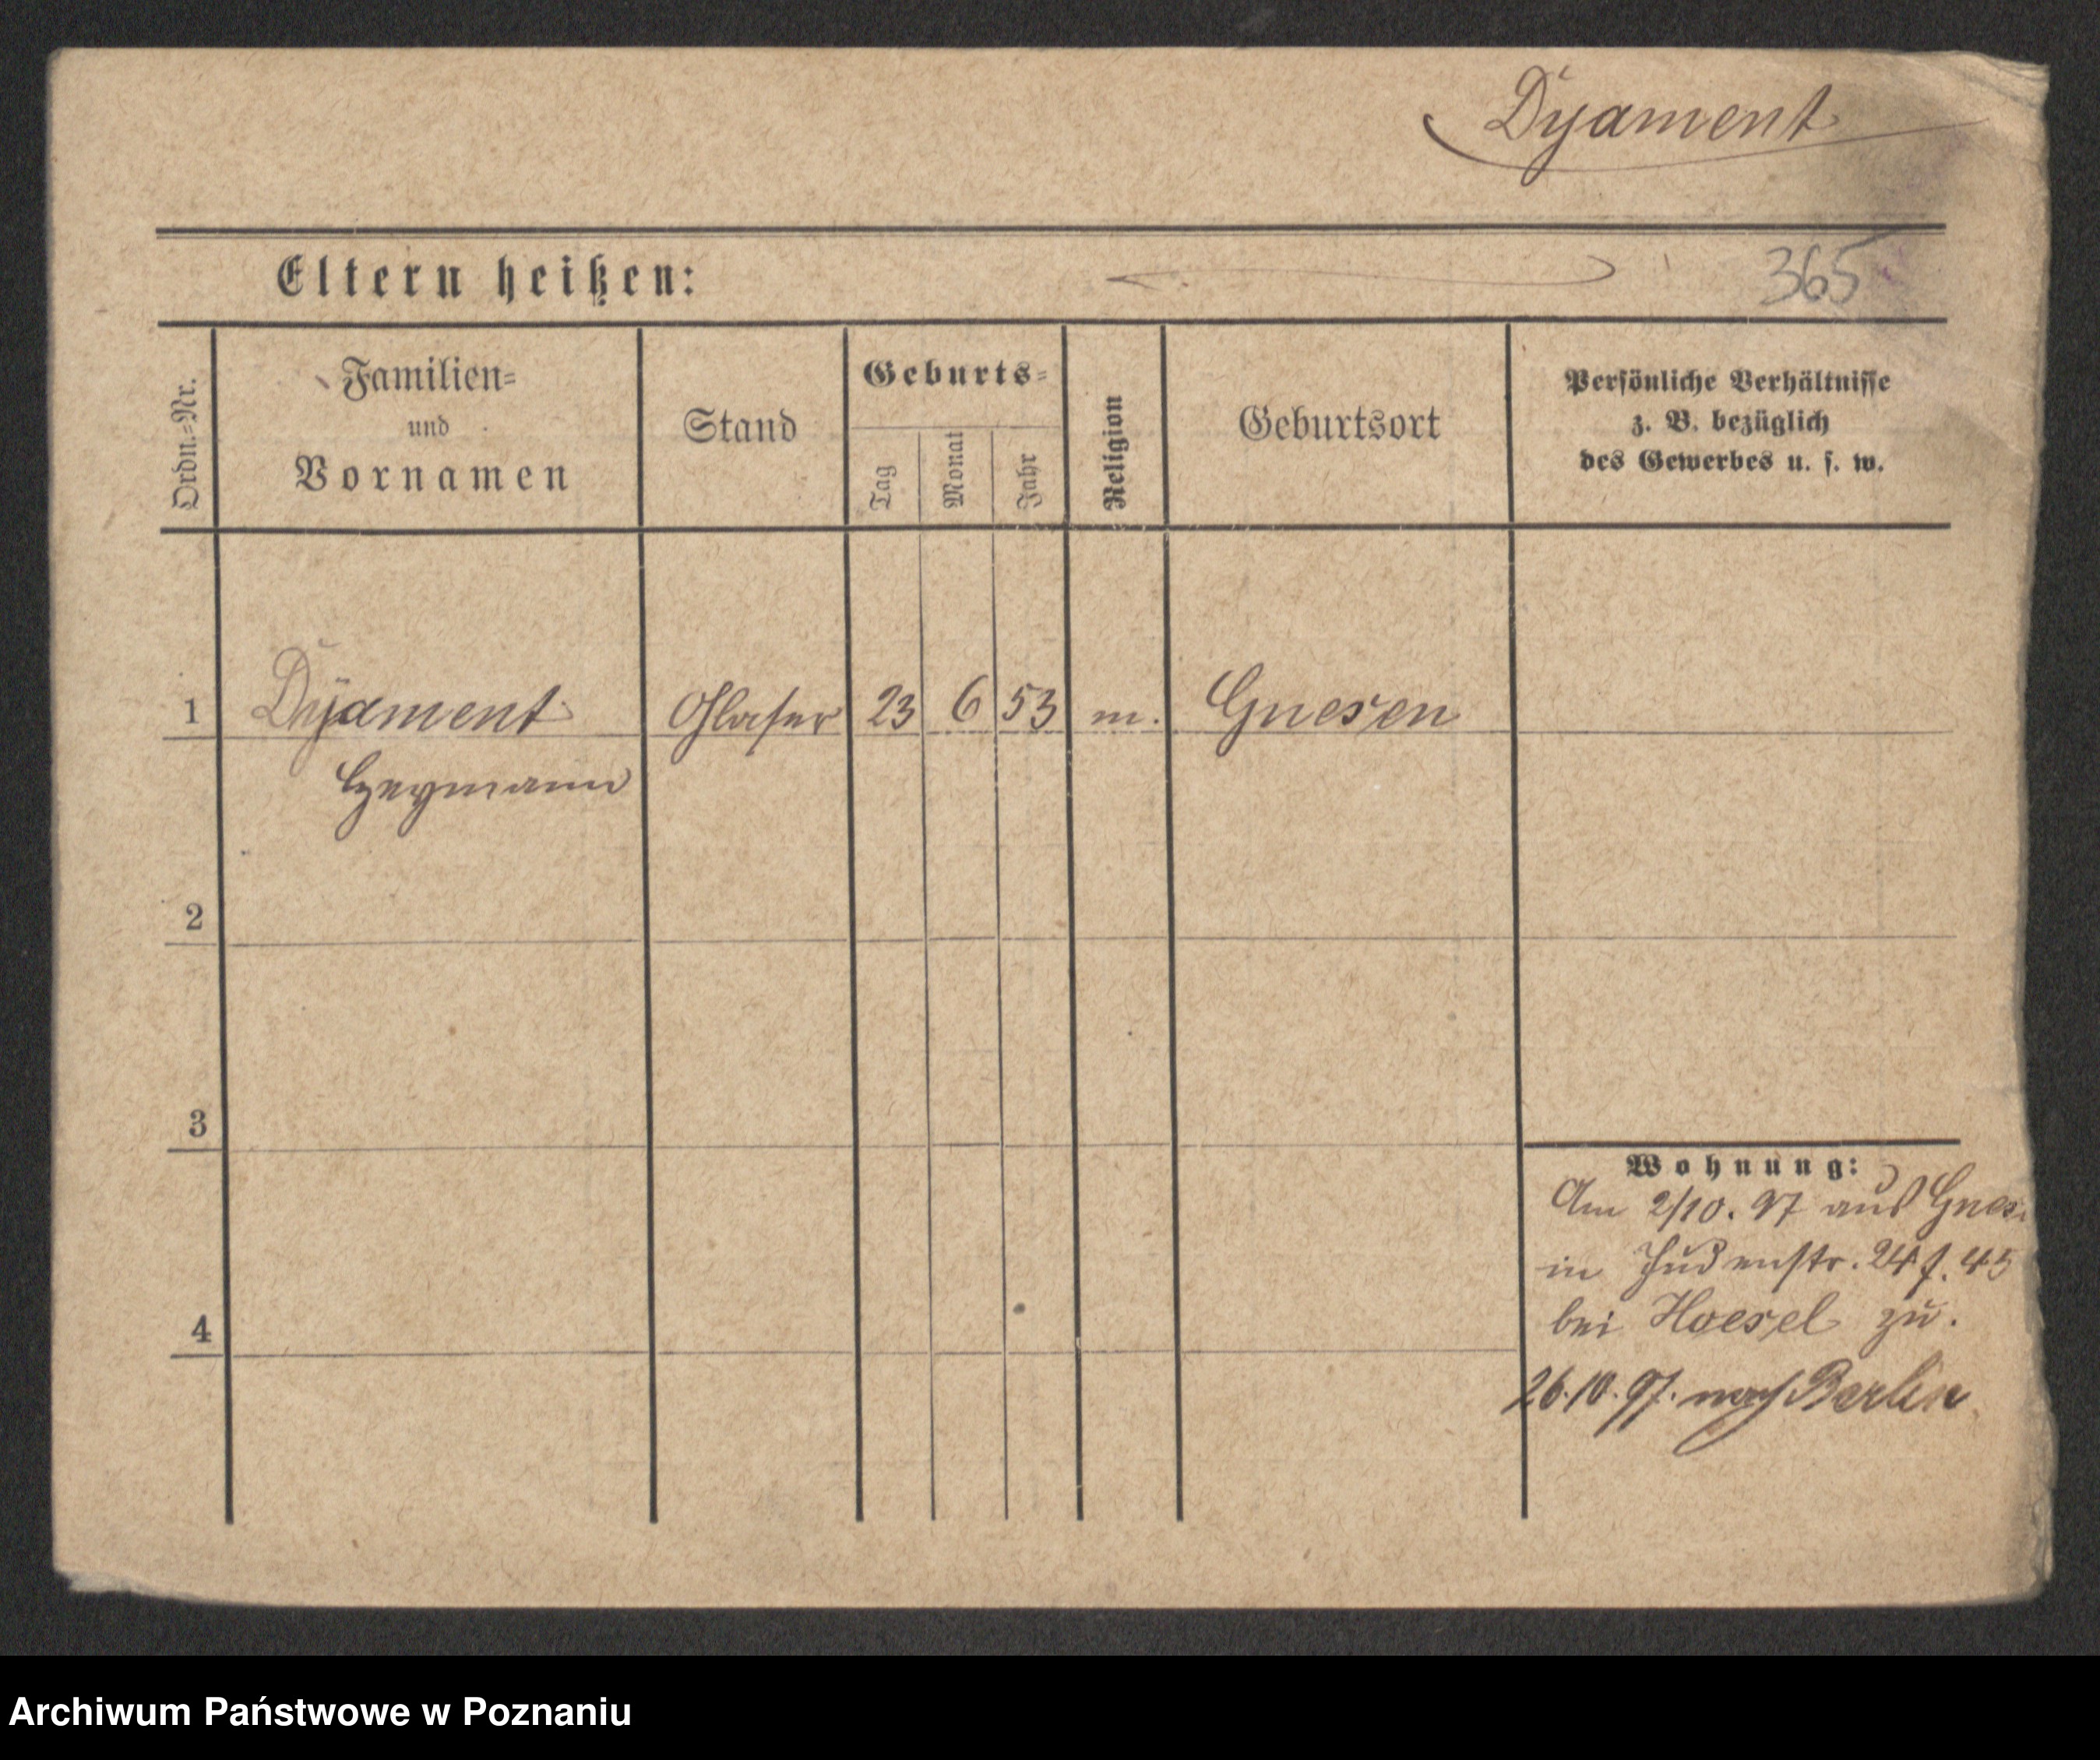 Dyament
Eltern heißen:
365
Ordn.=Nr.
Familien=
und
Vornamen
Stand
Geburts=
Tag
Monat
Jahr
Religion
Geburtsort
Persönliche Verhältnisse
z. B. bezüglich
des Gewerbes u. s. w.
1 Dyament Glaser 23 6 53 m. Gnesen
Heymann
2
3
4
Wohnung:
Am 2/10. 97 aus Gnes.
in Judenstr. 24
bei Hoesel zu.
26.10.97. nach Berlin
Archiwum Państwowe w Poznaniu